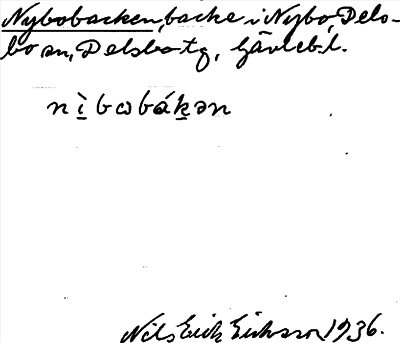 Nybobacken, backe i Nybo, Dels-
bo sn, Delsbo tg, Gävlebl.
nìbωbákən
Nils Erik Eriksson 1936.